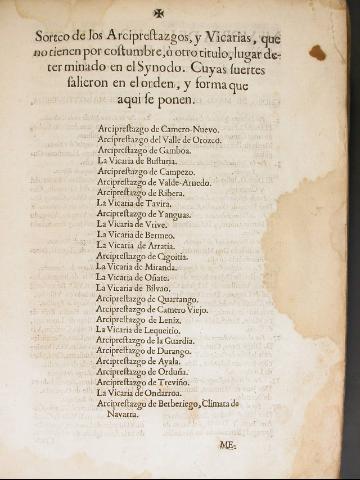 ✠
Sorteo de los Arciprestazgos, y Vicarias, que
no tienen por costumbre, ò otro titulo, lugar de-
terminado en el Synodo. Cuyas suertes
salieron en el orden, y forma que
aqui se ponen.
Arciprestazgo de Camero-Nuevo.
Arciprestazgo del Valle de Orozco.
Arciprestazgo de Gamboa.
La Vicaria de Busturia.
Arciprestazgo de Campezo.
Arciprestazgo de Valde-Arnedo.
Arciprestazgo de Ribera.
La Vicaria de Tavira.
Arciprestazgo de Yanguas.
La Vicaria de Vrive.
La Vicaria de Bermeo.
La Vicaria de Arratia.
Arciprestazgo de Cigoitia.
La Vicaria de Miranda.
La Vicaria de Oñate.
La Vicaria de Bilvao.
Arciprestazgo de Quartango.
Arciprestazgo de Camero Viejo.
Arciprestazgo de Leniz.
La Vicaria de Lequeitio.
Arciprestazgo de la Guardia.
Arciprestazgo de Durango.
Arciprestazgo de Ayala.
Arciprestazgo de Orduña.
Arciprestazgo de Treviño.
La Vicaria de Ondarroa.
Arciprestazgo de Berberiego, Climata de
Navarra.
ME: